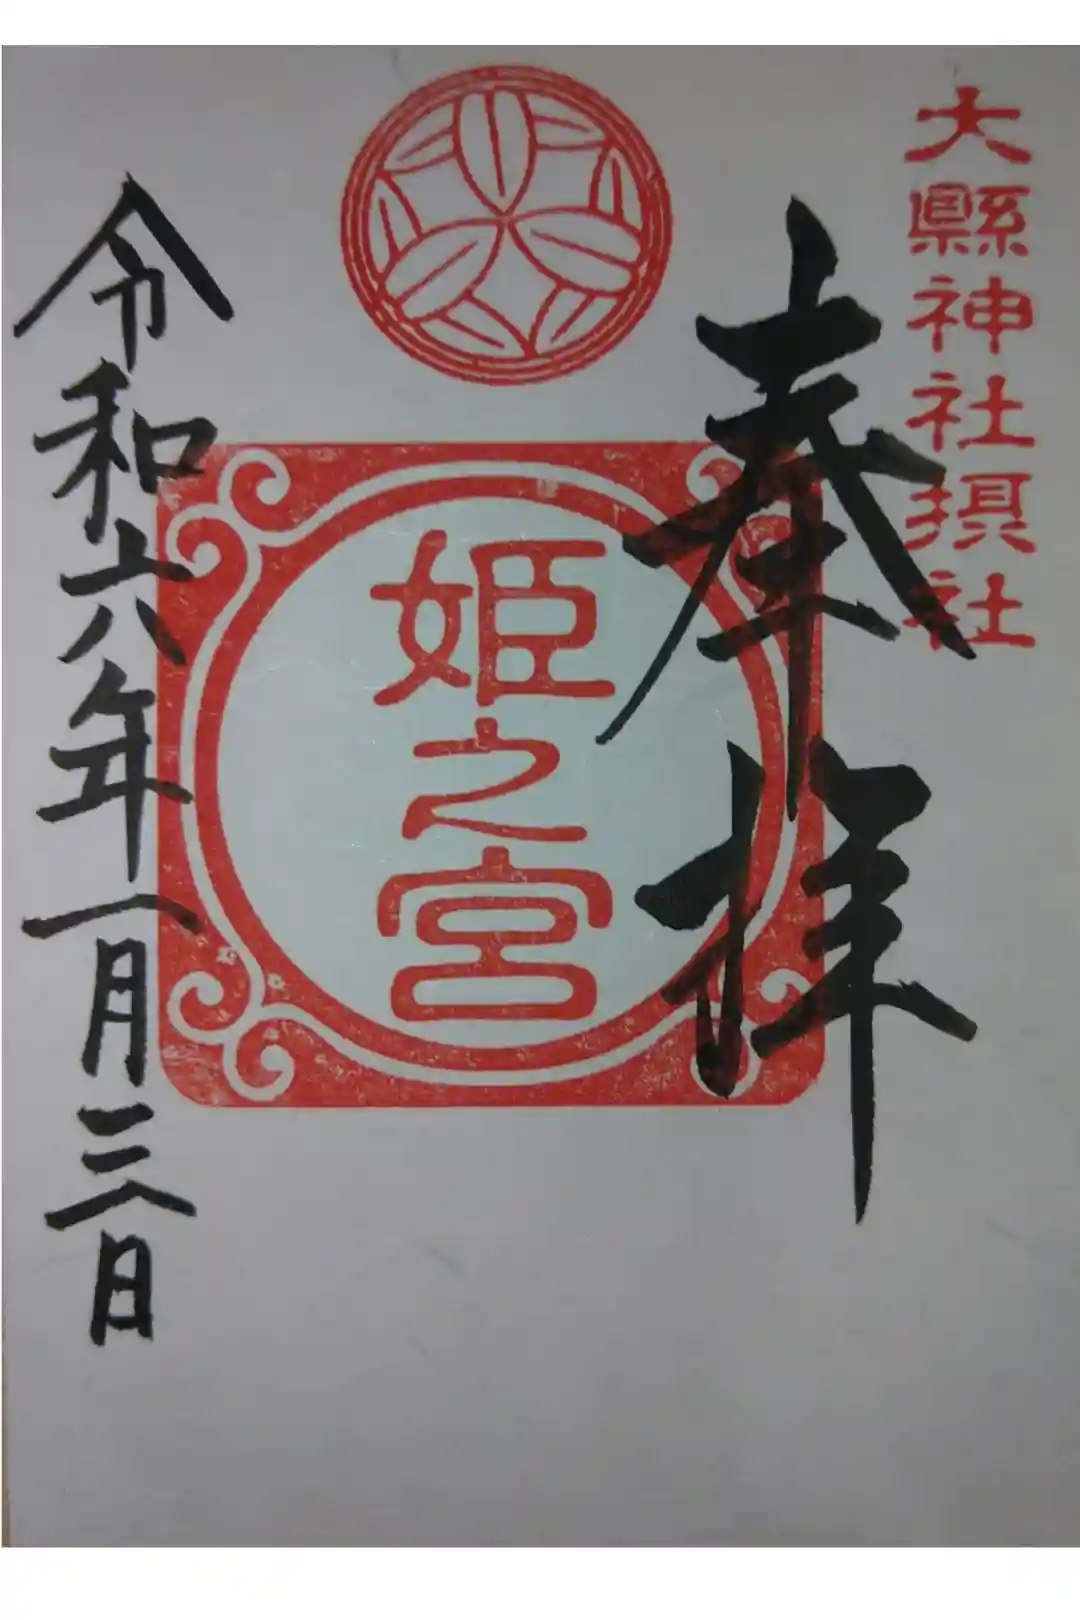 大縣神社摂社
奉拝
姫之宮
令和六年一月三日